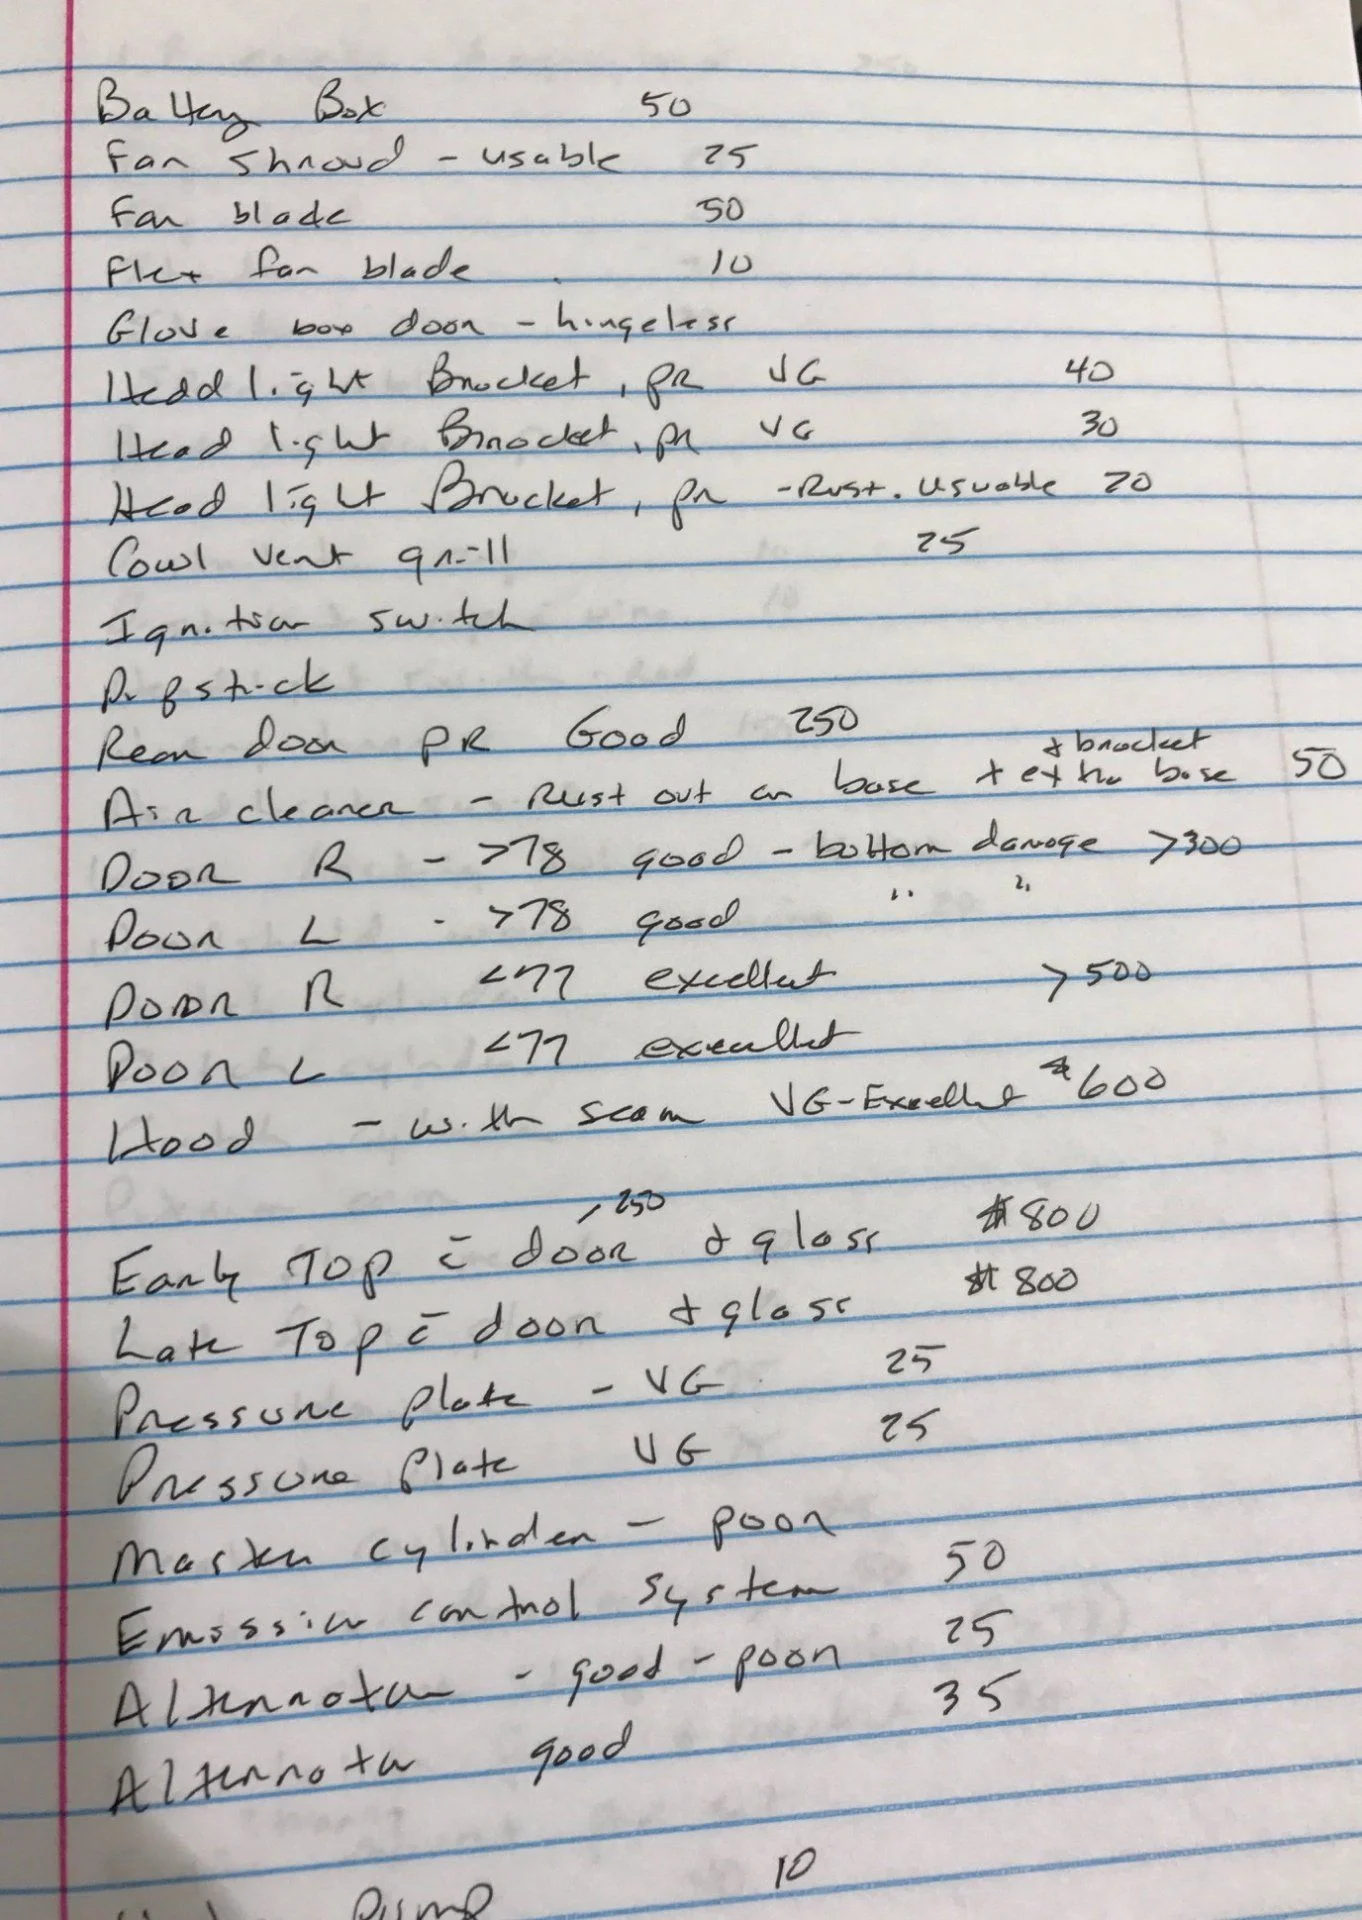 Battery Box 50
Fan Shroud - usable 25
Fan blade 50
Flex fan blade 10
Glove box door - hingeless
Headlight Bracket, pr VG 40
Head light Bracket, pr VG 30
Head light Bracket, pr - Rust. Usuable 20
Cowl vent grill 25
Ignition switch
Dipstick
Rear door PR Good 250
+ bracket
Air cleaner - Rust out on base + extra base 50
Door R - >78 good - bottom damage >300
Door L - >78 good " "
Door R <77 excellent >500
Door L <77 excellent
Hood - with seam VG-Excellent $600
250
Early Top c̄ door + glass $800
Late Top c̄ door + glass $800
Pressure plate - VG 25
Pressure Plate VG 25
Master cylinder - poor
Emission control system 50
Alternator - good - poor 25
Alternator good 35
Pump 10